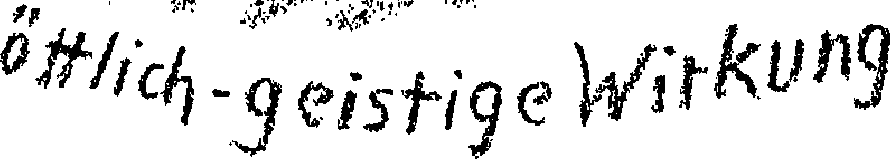 öttlich-geistige Wirkung